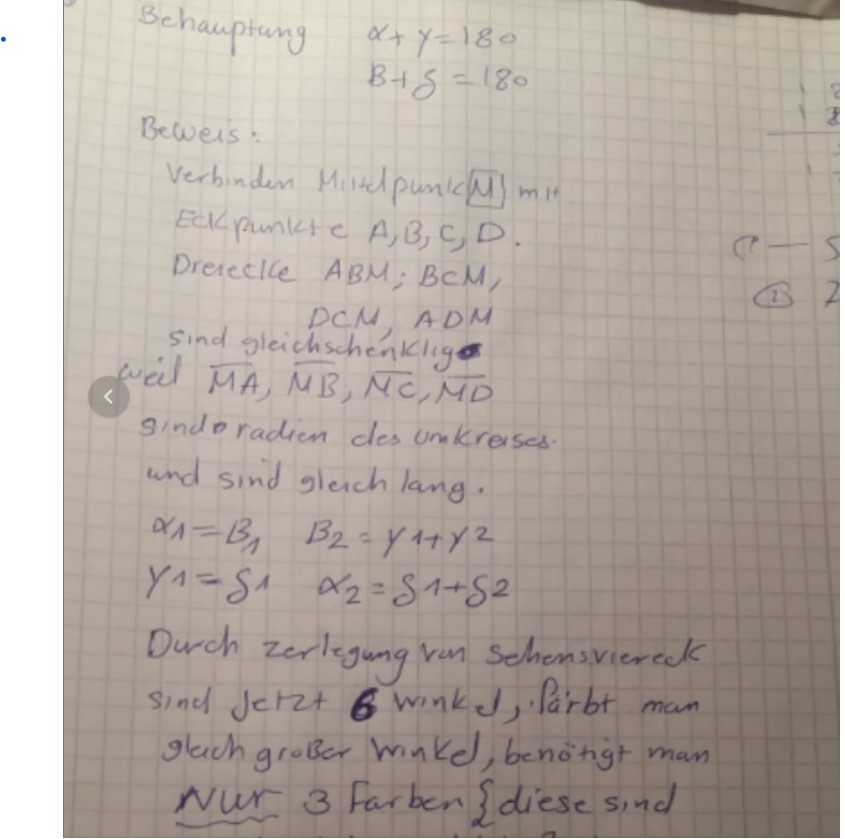 Behauptung α+ γ=180
B+δ =180
Beweis:
Verbinden Mittelpunkt M mit
Eckpunkte A,B,C,D.
Dreiecke ABM; BCM,
DCM, ADM
sind gleichschenklig
weil MA, MB, MC, MD
sind radien des umkreises.
und sind gleich lang.
α1=B1 B2=γ1+γ2
γ1=δ1 α2=δ1+δ2
Durch zerlegung von Sehensviereck
sind jetzt 6 winkel, färbt man
gleich großer winkel, benötigt man
Nur 3 Farben {diese sind